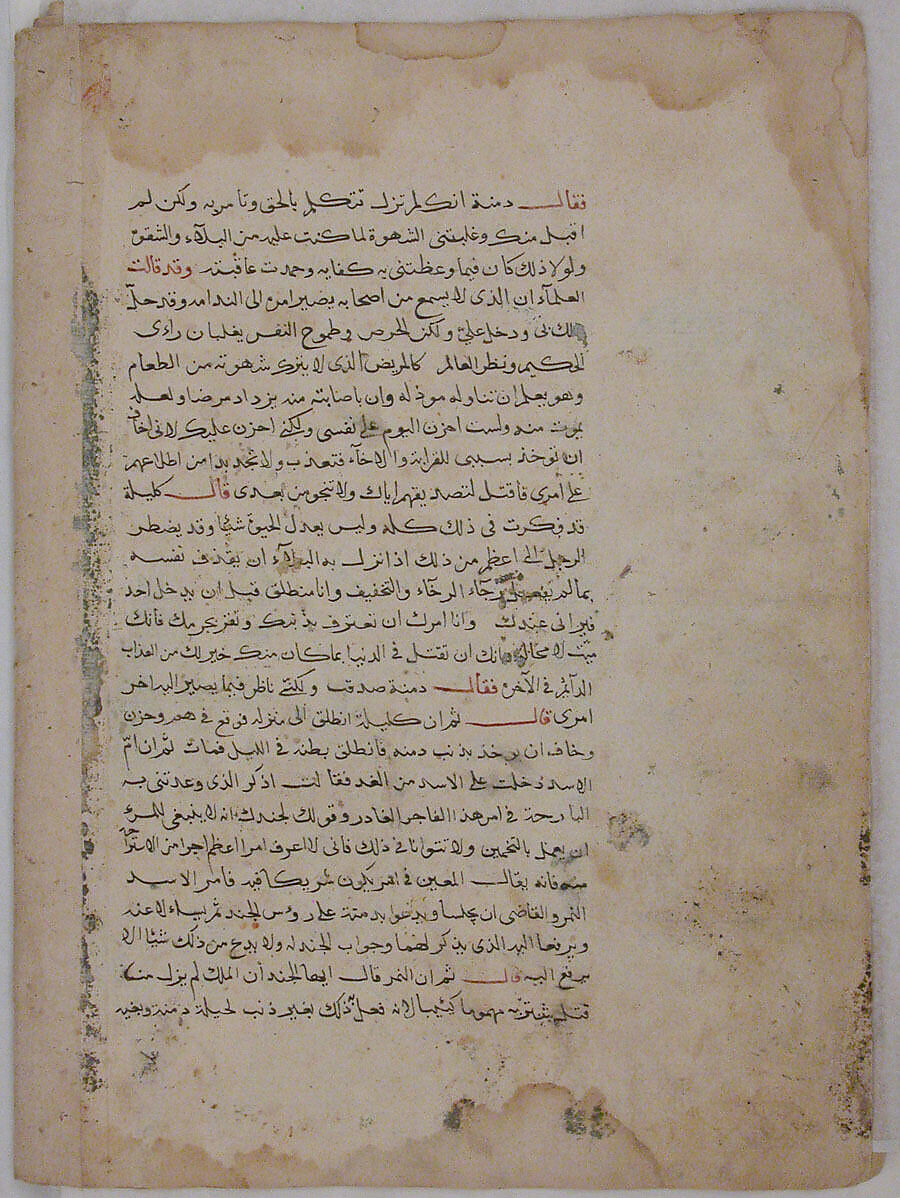 فقالـــ دمنة انك لم تزل تتكلم بالحق وتامر به ولكن لم
اقبل منك وغلبتني الشهوة لما كنت عليه من البلاء والشقوة
ولولا ذلك كان فيما وعظتني به كفايه وحمدت عاقبته وقد قالت
العلمآء ان الذى لا يسمع من اصحابه يصير امره الى الندامه وقد حل
ذلك بى ودخل علي ولكن الحرص وطموح النفس يغلبان راءى
الحكيم ونظر العالم كالمريض الذى لا يترك شهوته من الطعام
وهو يعلم ان تناوله موذ له وان باصابته منه يزداد مرضا ولعله
يموت منه ولست احزن اليوم على نفسي ولكني احزن عليك لاني اخاف
ان توخذ بسببي للقرابة والاخآء فتعذب ولا تجد بدا من اطلاعهم
على امرى فاقتل لتصديقهم اياك ولا تنجو من بعدى قالـــ كليلة
قد فكرت فى ذلك كله وليس يعدل الحيوة شيئا وقد يضطر
الرجل الى اعظم من ذلك اذا نزل به البلآء ان يقذف نفسه
بما لم يفعل رجآء الرخآء والتخفيف وانا منطلق قبل ان يدخل احد
فيرانى عندك وانا امرك ان تعترف بذنبك وتقر بجرمك فانك
ميت لا محالة وانك ان تقتل فى الدنيا بما كان منك خير لك من العذاب
الدائم فى الآخرة فقالـــ دمنة صدقت ولكني ناظر فيما يصير اليه اخر
امرى قالـــ ثم ان كليلة انطلق الى منزله فوقع فى هم وحزن
وخاف ان يوخذ بذنب دمنه فانطلق بطنه فى الليل فمات ثم ان ام
الاسد دخلت على الاسد من الغد فقالت اذكر الذى وعدتنى به
البارحة فى امر هذا الفاجر الغادر وقولك لجندك انه لا ينبغي للمرء
ان يعمل بالتخمين ولا تتوانا فى ذلك فانى لا اعرف امرا اعظم اجرا من الاستراحة
منه فانه يقالـ المعين فى امر يكون شريكا فيه فامر الاسد
النمر والقاضى ان يجلسا ويدعوا بدمنة على روس الجند ثم يسلا عنه
ويرفعا اليه الذى يذكر لهما وجواب الجند له ولا يدع من ذلك شيئا الا
يرفع اليه قالـــ ثم ان النمر قال ايها الجند ان الملك لم يزل منذ
قتل شتربه مهموما كئيبا لانه فعل ذلك بغير ذنب لحيلة دمنة وبغيه